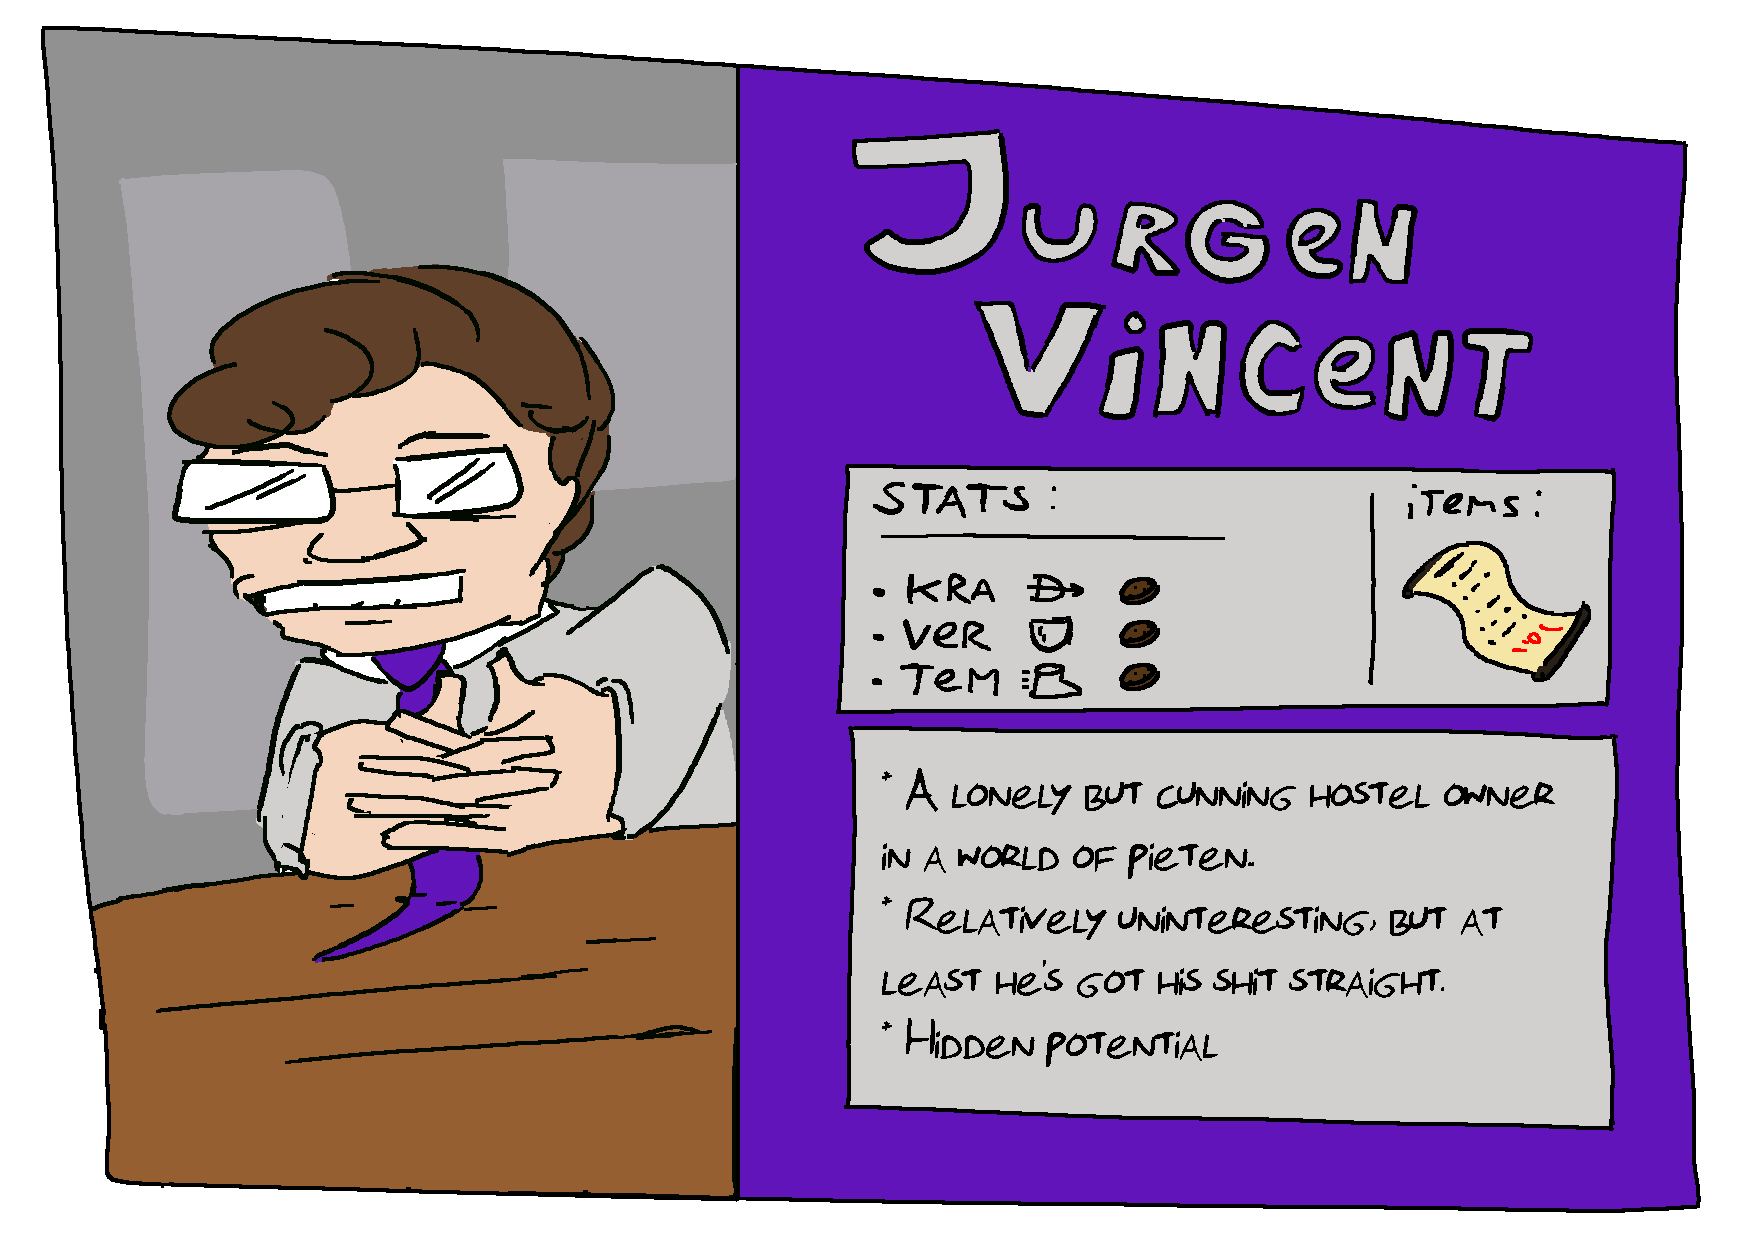 JURGeN
ViNCeNT
STATS:
iTems:
• KRA
• VeR
• TeM
* A LONeLY BUT CUNNiNG HOSTeL OWNeR
iN A WORLD OF PieTeN.
* ReLATiVeLY UNiNTeReSTiNG, BUT AT
LeAST He'S GOT HiS SHiT STRAiGHT.
* HiDDeN POTeNTiAL